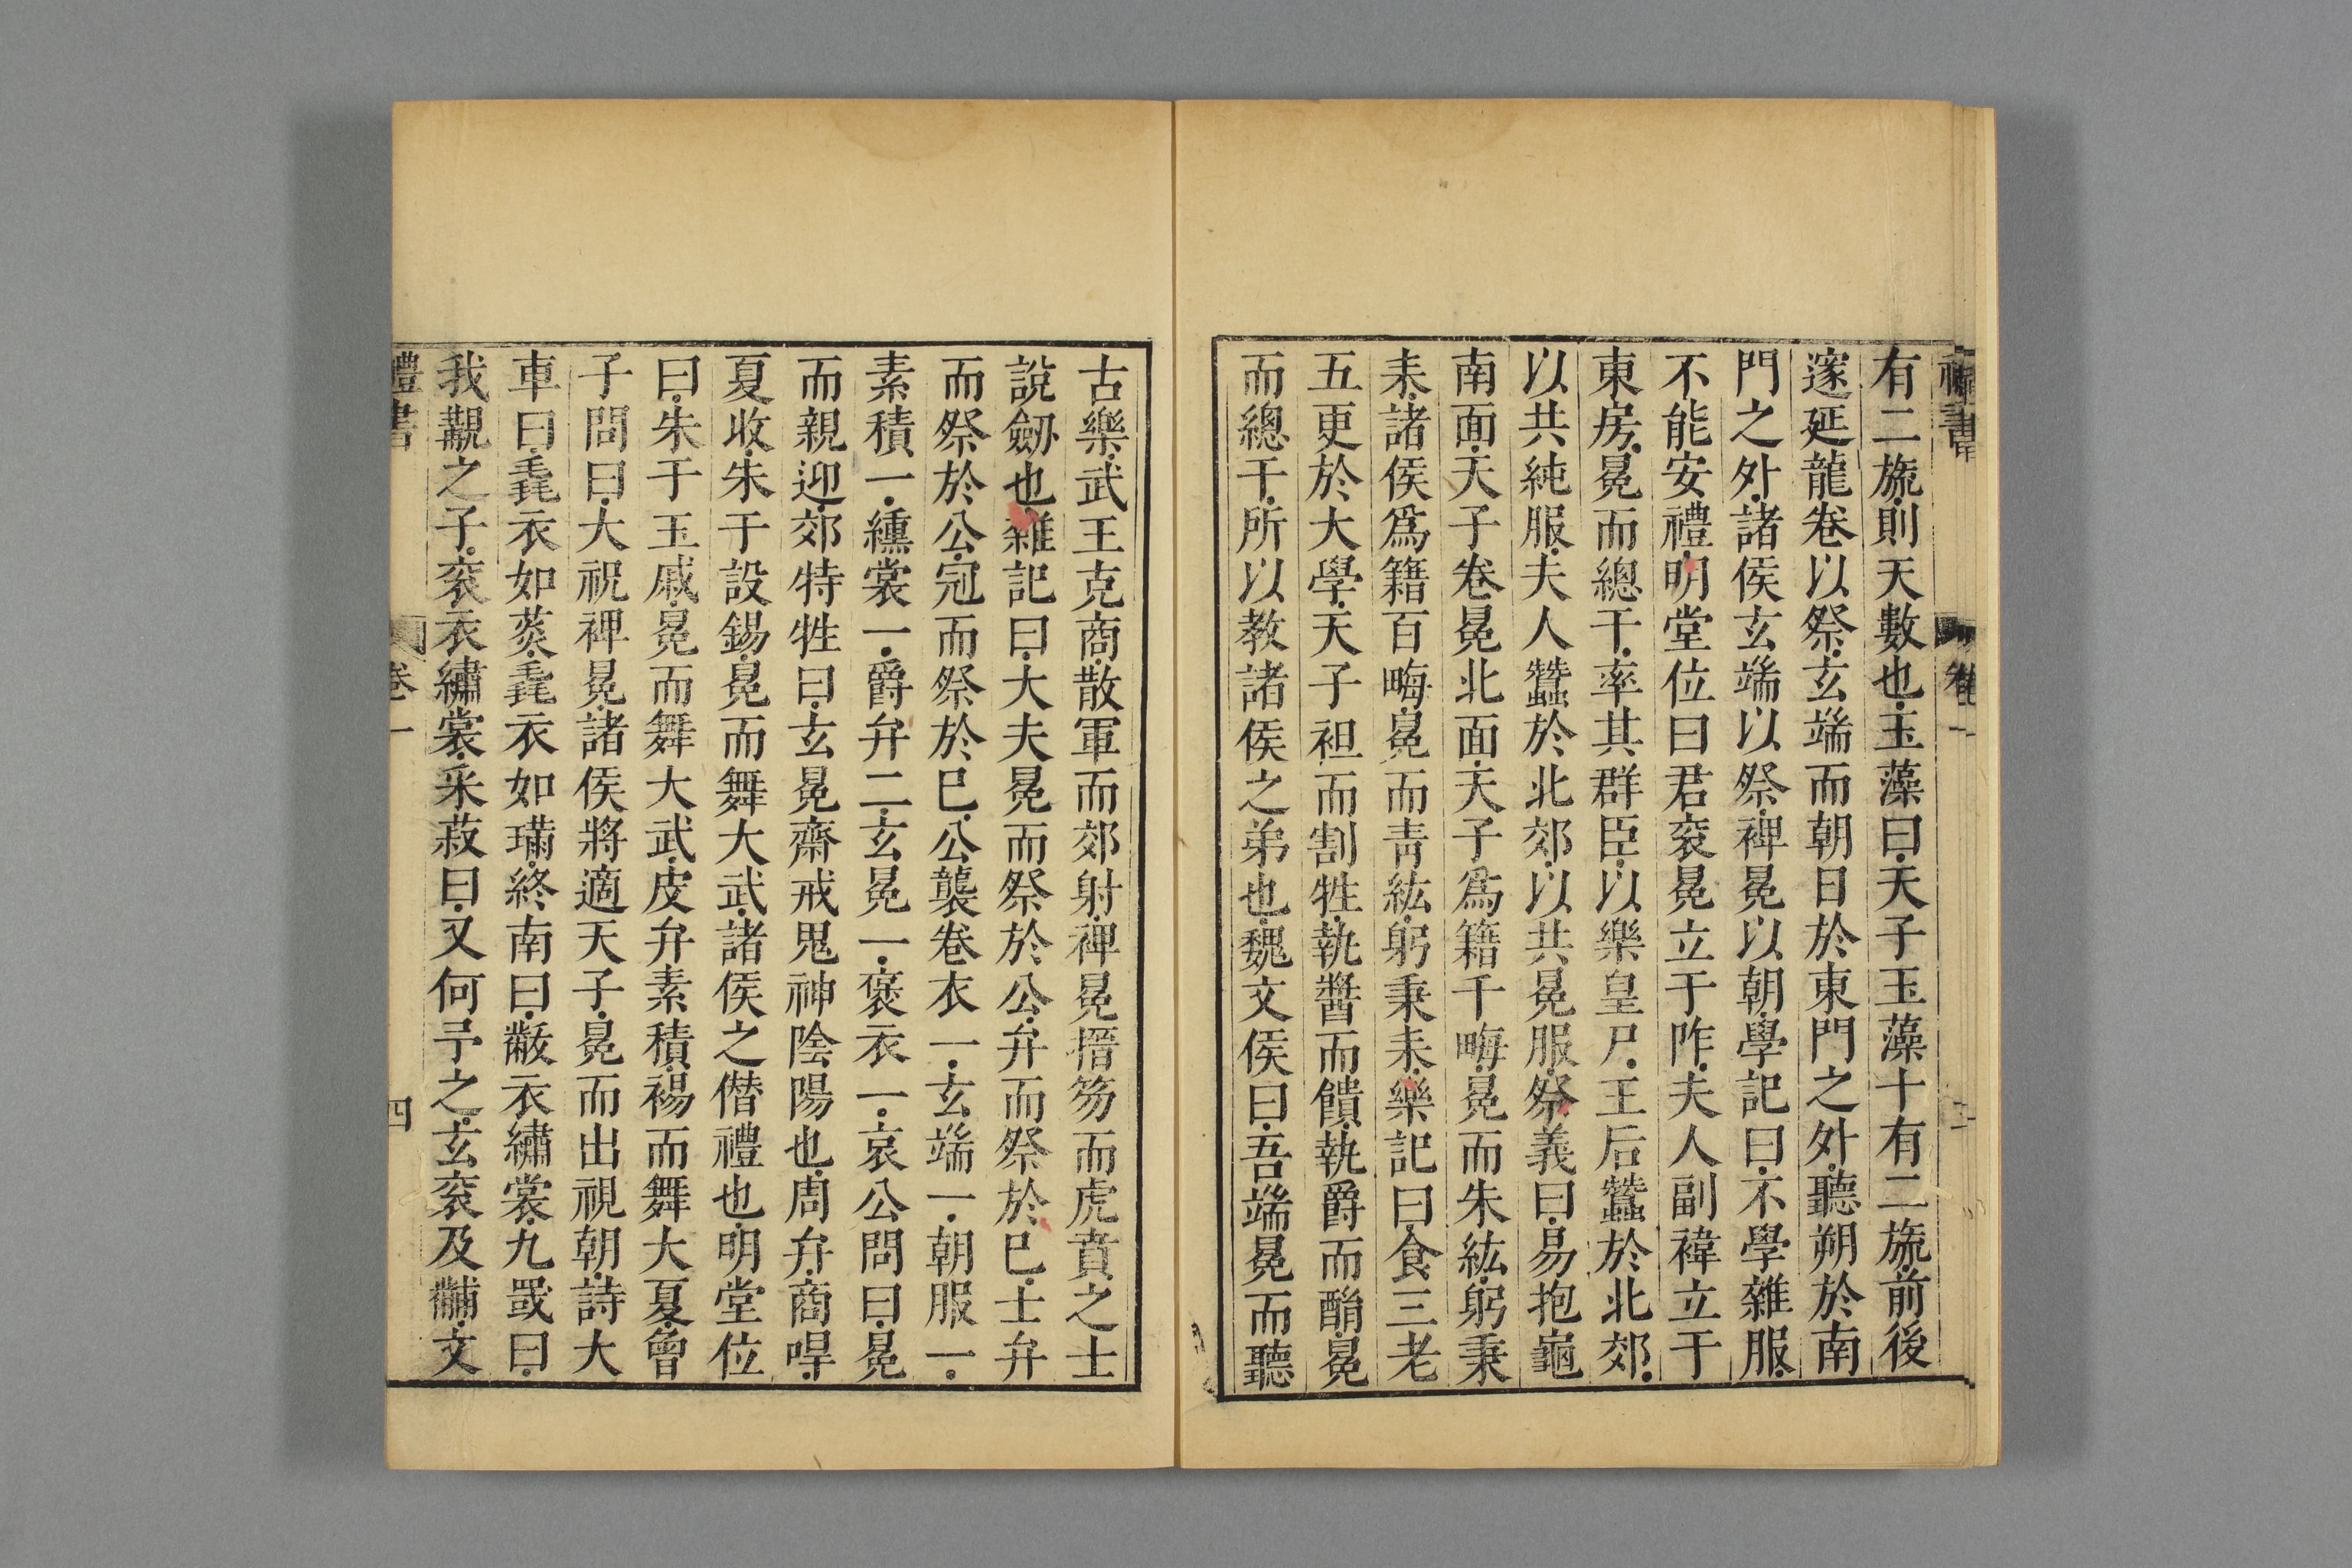 禮書 卷一
有二旒則天數也玉藻曰天子玉藻十有二旒前後
邃延龍卷以祭玄端而朝日於東門之外聽朔於南
門之外諸侯玄端以祭裨冕以朝學記曰不學雜服
不能安禮明堂位曰君袞冕立于阼夫人副褘立于
東房冕而總干率其群臣以樂皇尸王后蠶於北郊
以共純服夫人蠶於北郊以共冕服祭義曰易抱龜
南面天子卷冕北面天子為籍千畮冕而朱紘躬秉
耒諸侯為籍百畮冕而青紘躬秉耒樂記曰食三老
五更於大學天子袒而割牲執醬而饋執爵而酳冕
而總干所以教諸侯之弟也魏文侯曰吾端冕而聽
古樂武王克商散軍而郊射裨冕搢笏而虎賁之士
說劒也雜記曰大夫冕而祭於公弁而祭於巳士弁
而祭於公冠而祭於巳公襲卷衣一玄端一朝服一
素積一纁裳一爵弁二玄冕一褒衣一哀公問曰冕
而親迎郊特牲曰玄冕齋戒鬼神陰陽也周弁商冔
夏收朱干設錫冕而舞大武諸侯之僭禮也明堂位
曰朱干玉戚冕而舞大武皮弁素積裼而舞大夏曾
子問曰大祝裨冕諸侯將適天子冕而出視朝詩大
車曰毳衣如菼毳衣如璊終南曰黻衣繡裳九罭曰
我覯之子袞衣繡裳采菽曰又何予之玄袞及黼文
禮書 卷一 四